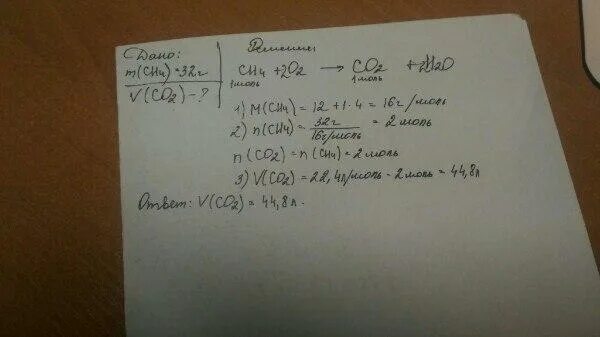 Дано:
m(CH4)=32г
V(CO2)-?
Решение
CH4 +2O2 → CO2 +2H2O
1моль 1моль
1) M(CH4) = 12 + 1·4 = 16г/моль
2) n(CH4) = 32г / 16г/моль = 2моль
n(CO2) = n(CH4) = 2моль
3) V(CO2) = 22,4л/моль · 2моль = 44,8л
Ответ: V(CO2) = 44,8л.